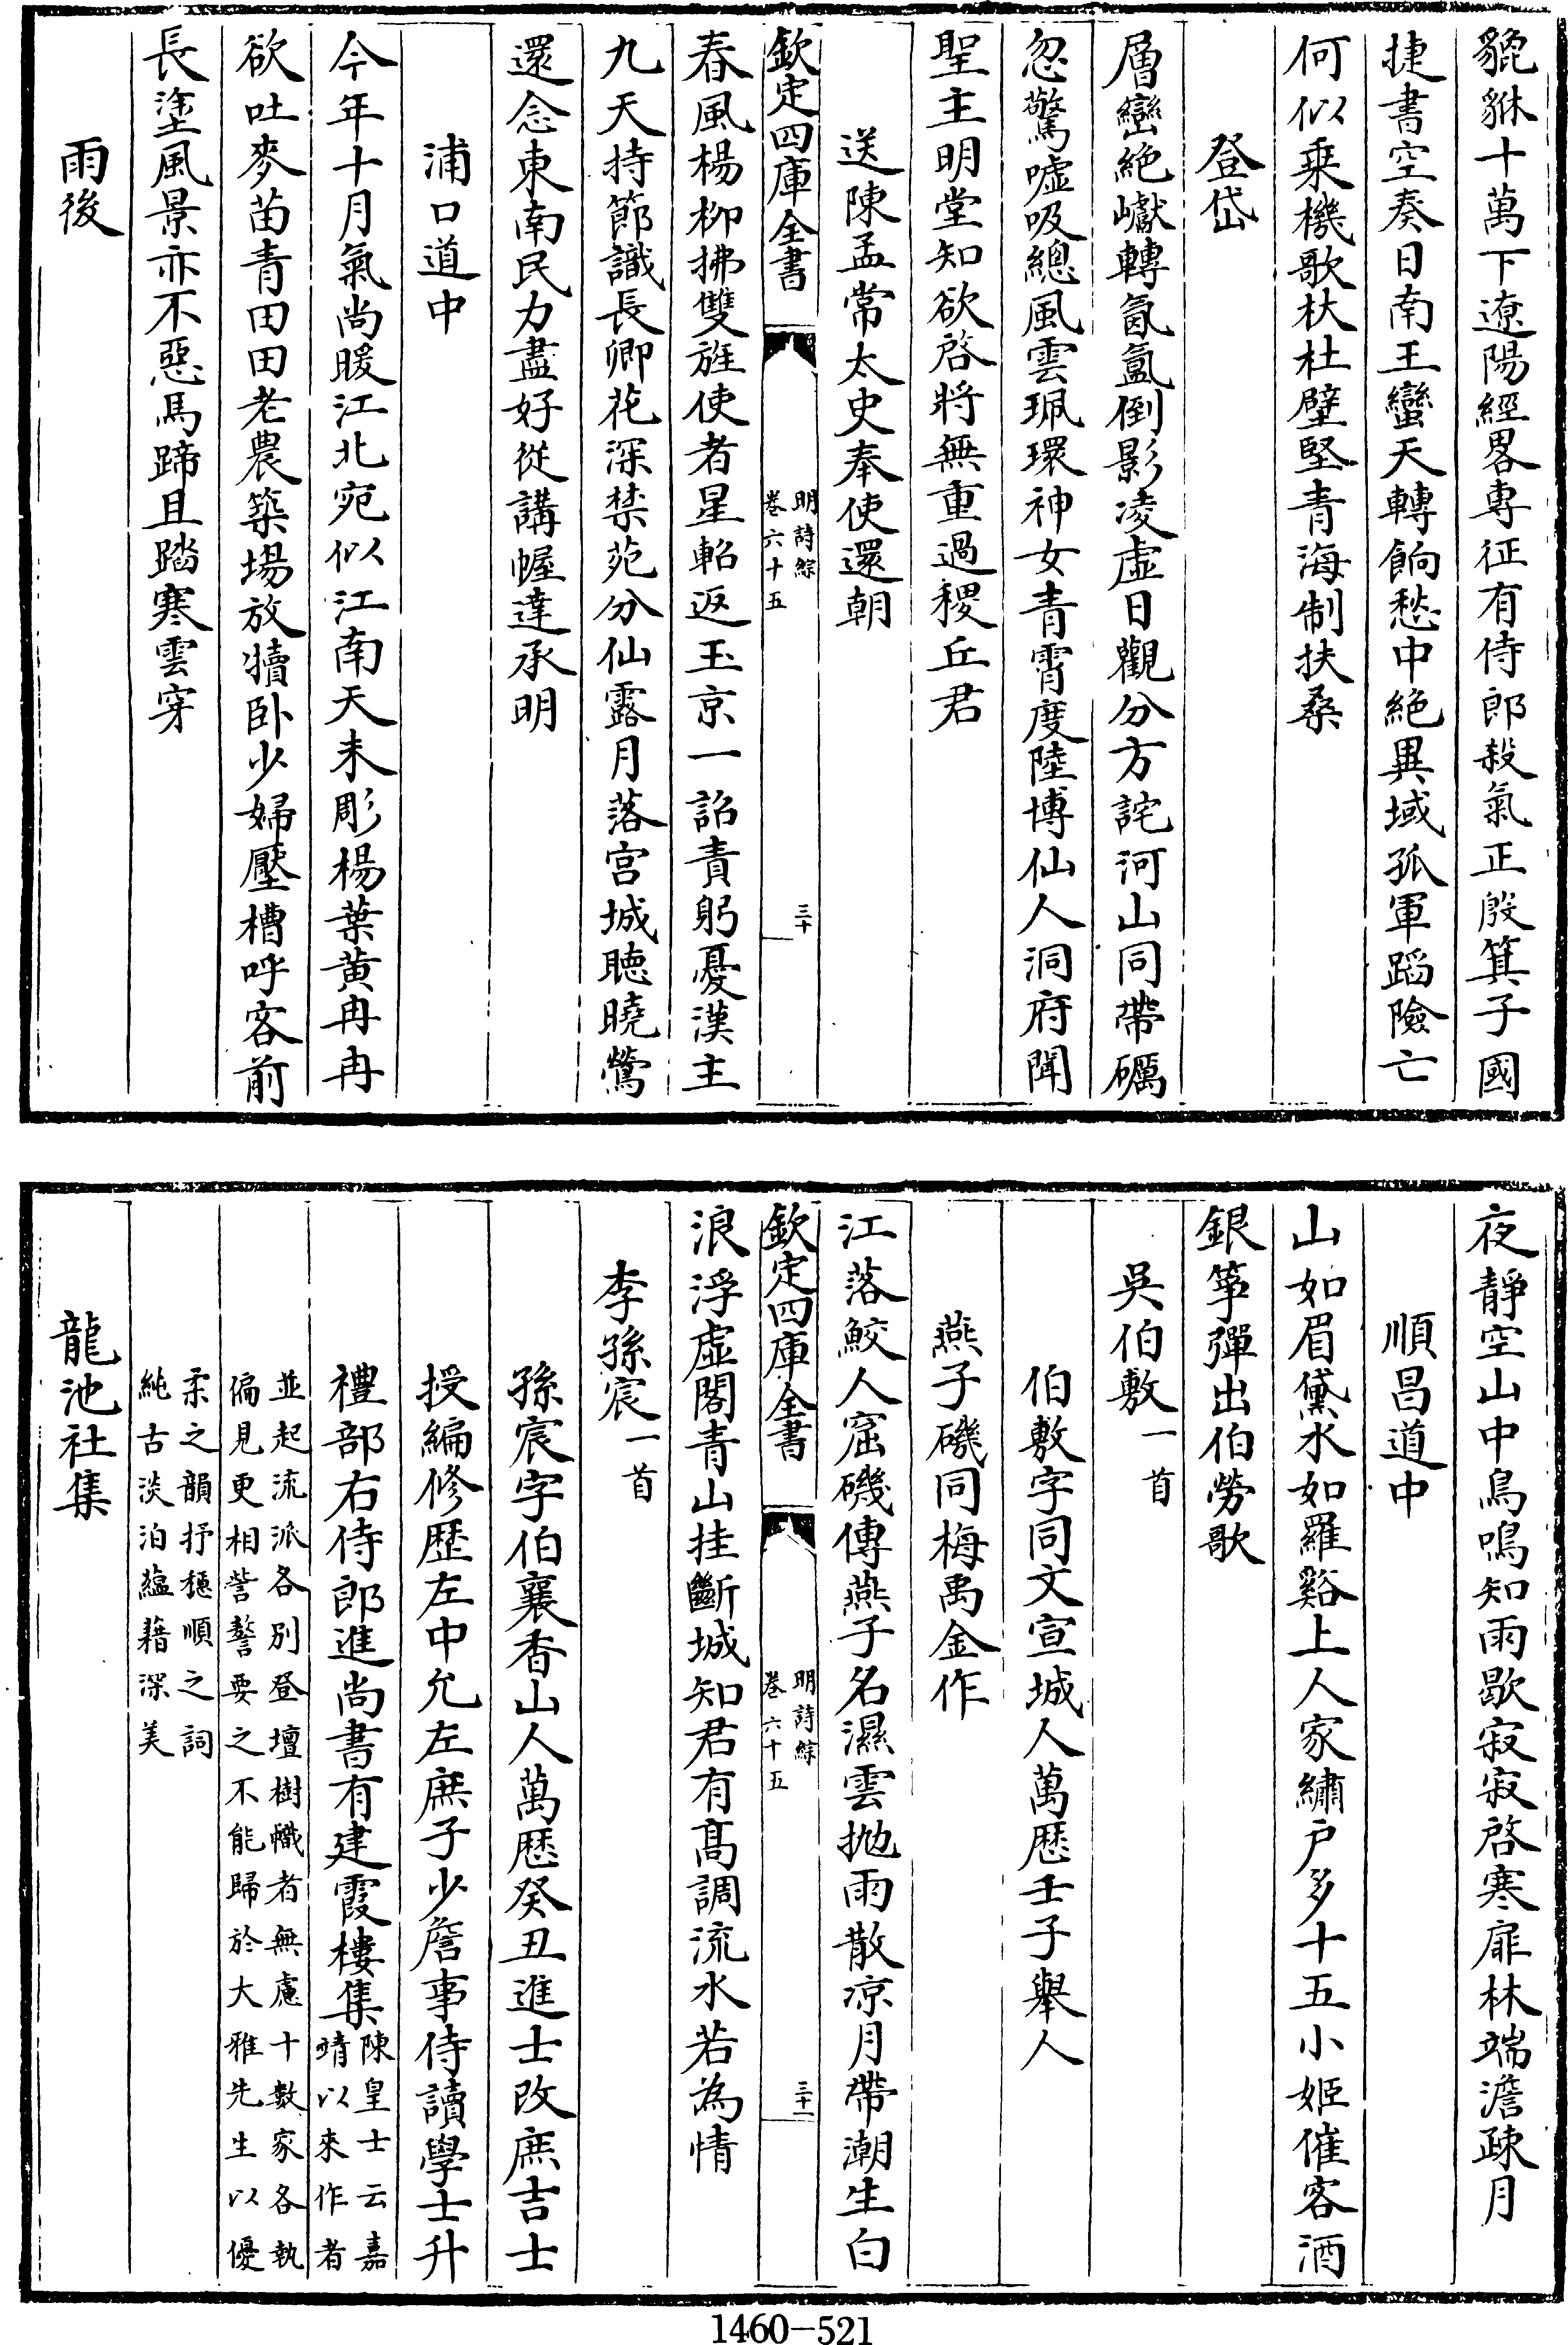 貔貅十萬下遼陽經畧專征有侍郎殺氣正殷箕子國
捷書空奏日南王蠻天轉餉愁中絶異域孤軍蹈險亡
何似乗機歌杕杜壁堅青海制扶桑
登岱
層巒絶巘轉氤氲倒影凌虚日觀分方詫河山同帶礪
忽驚嘘吸總風雲珮環神女青霄度陸博仙人洞府聞
聖主明堂知欲啓將無重過稷丘君
送陳孟常太史奉使還朝
欽定四庫全書
明詩綜
卷六十五
三十
春風楊柳拂雙旌使者星軺返玉京一詔責躬憂漢主
九天持節識長卿花深禁苑分仙露月落宫城聴曉鶯
還念東南民力盡好從講幄達承明
浦口道中
今年十月氣尚暖江北宛似江南天未彫楊葉黄冉冉
欲吐麥苗青田田老農築場放犢卧少婦壓槽呼客前
長塗風景亦不惡馬蹄且踏寒雲穿
雨後
夜靜空山中鳥鳴知雨歇寂寂啓寒扉林端澹疎月
順昌道中
山如眉黛水如羅谿上人家繡户多十五小姬催客酒
銀筝彈出伯勞歌
吳伯敷一首
伯敷字同文宣城人萬厯壬子舉人
燕子磯同梅禹金作
江落鮫人窟磯傳燕子名濕雲抛雨散凉月帶潮生白
欽定四庫全書
明詩綜
卷六十五
三十一
浪浮虚閣青山挂斷城知君有髙調流水若為情
李孫宸一首
孫宸字伯襄香山人萬厯癸丑進士改庶吉士
授編修歴左中允左庶子少詹事侍讀學士升
禮部右侍郎進尚書有建霞樓集陳皇士云嘉
靖以來作者
並起流派各别登壇樹幟者無慮十數家各執
偏見更相訾謷要之不能歸於大雅先生以優
柔之韻抒穏順之詞
純古淡泊藴藉深美
龍池社集
1460-521